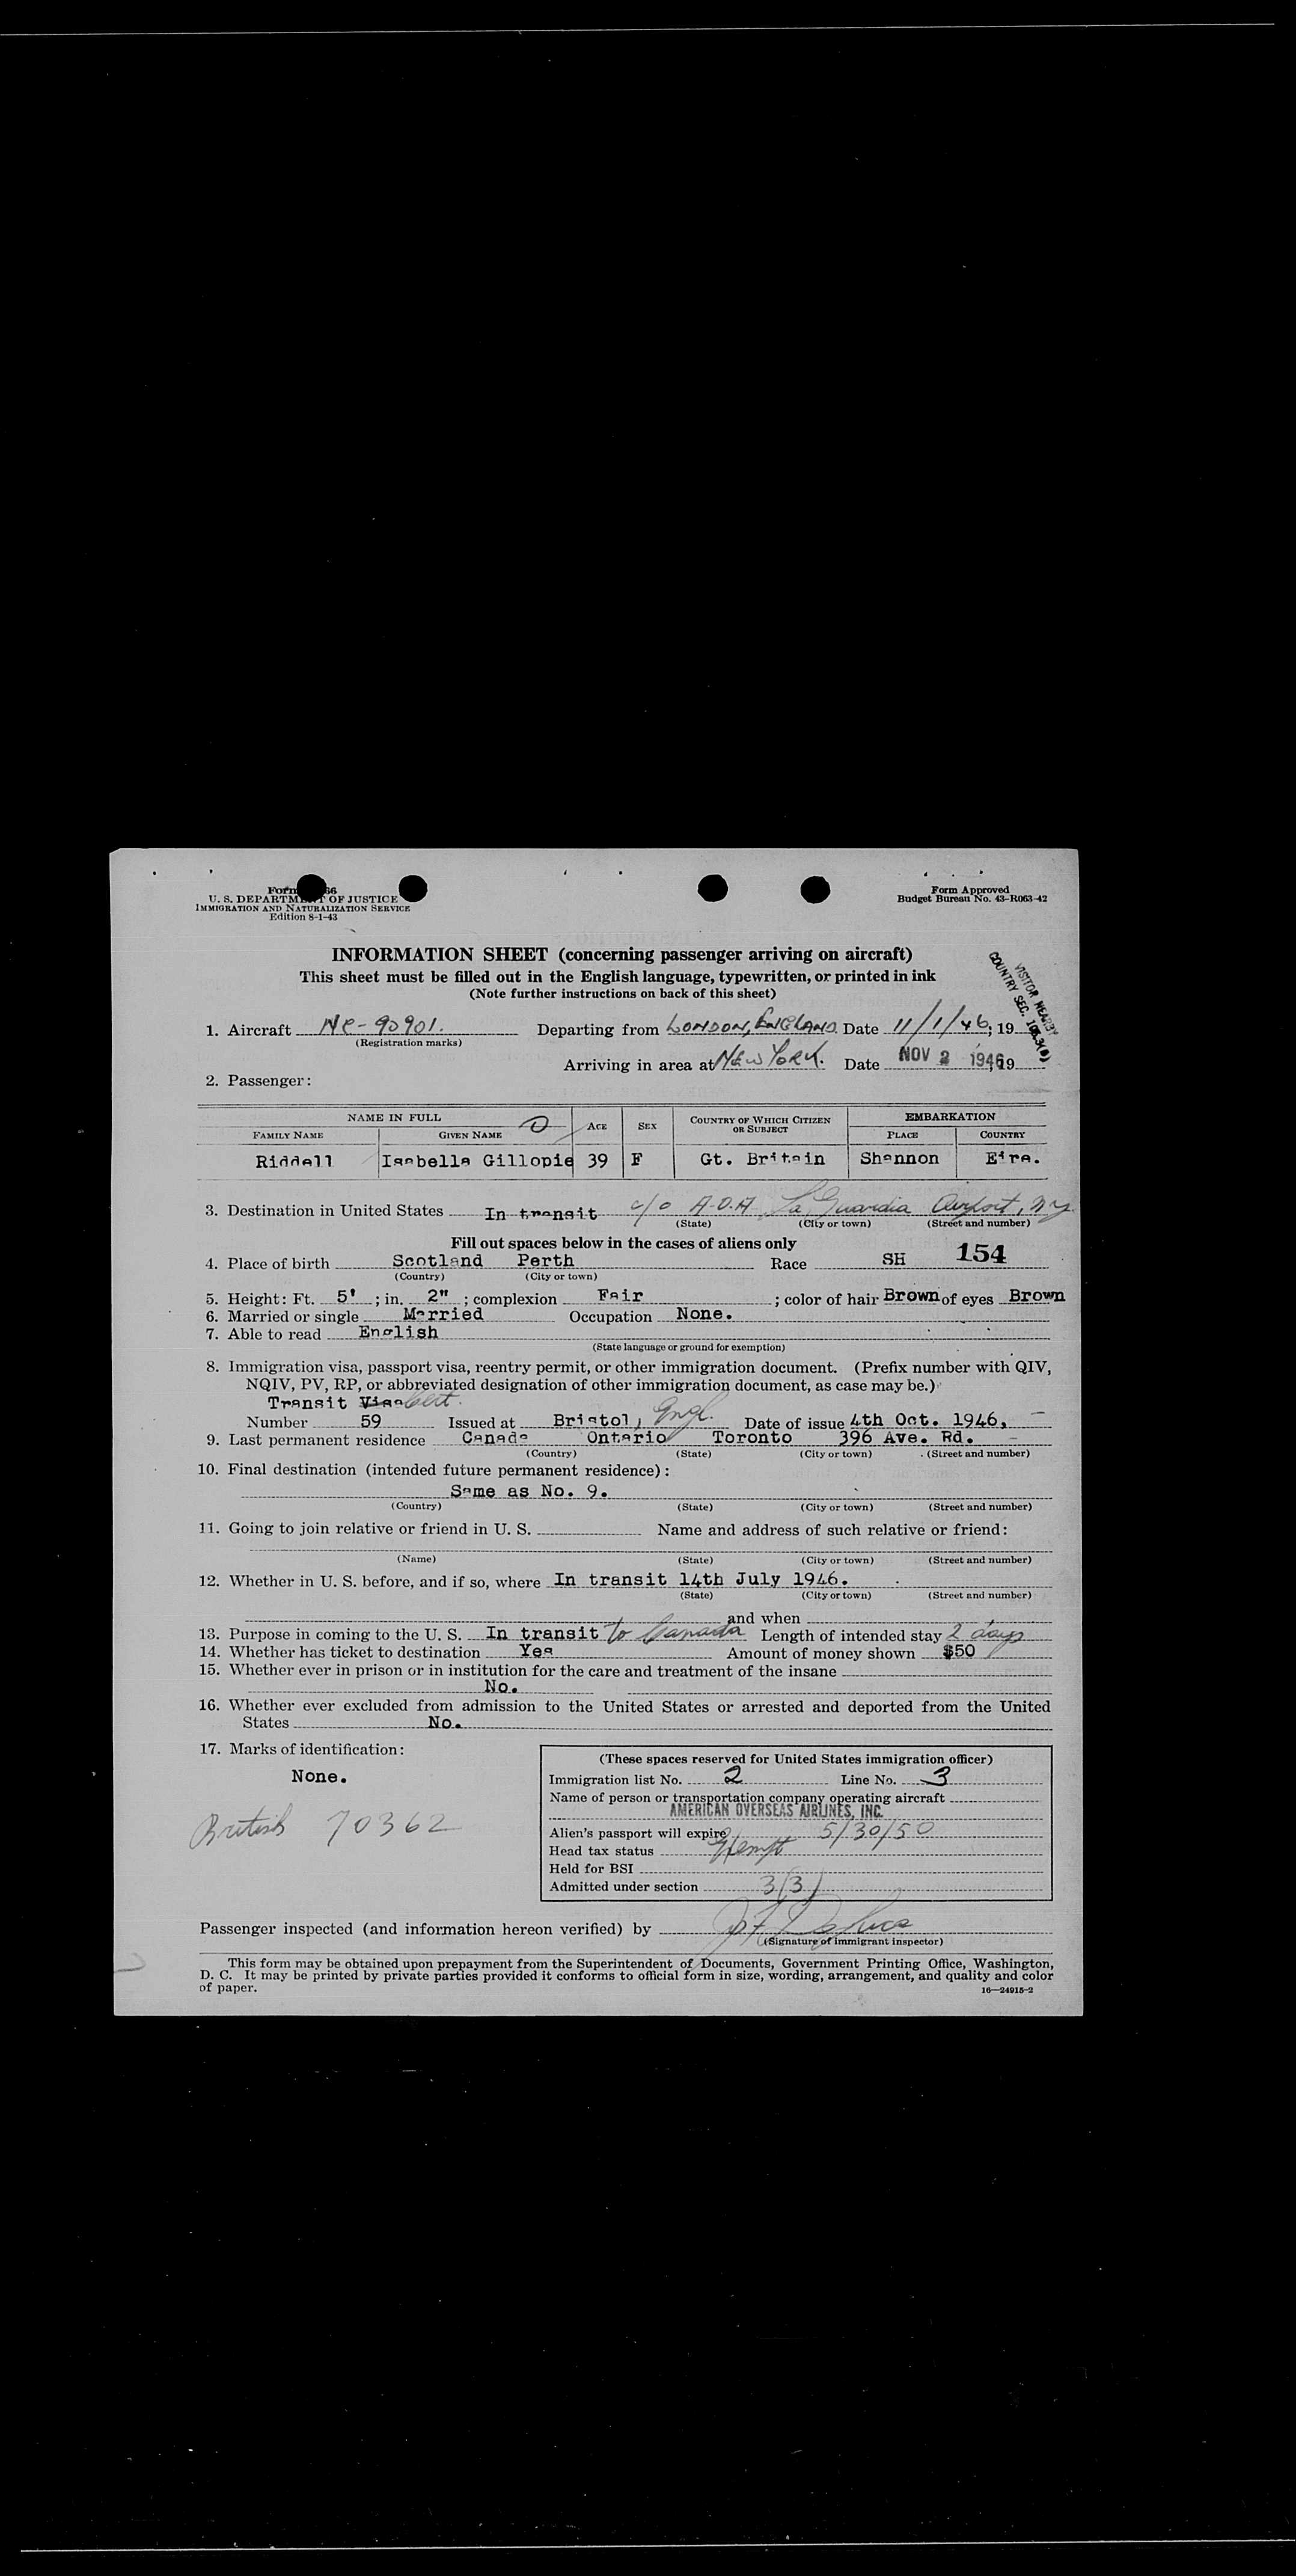 Form 66
U. S. DEPARTMENT OF JUSTICE
IMMIGRATION AND NATURALIZATION SERVICE
Edition 8-1-43
Form Approved
Budget Bureau No. 43-R063-42
INFORMATION SHEET (concerning passenger arriving on aircraft)
This sheet must be filled out in the English language, typewritten, or printed in ink
(Note further instructions on back of this sheet)
VISITOR NEARBY
COUNTRY SEC.
1. Aircraft NC-90901. Departing from LONDON, ENGLAND. Date 11/1/46; 19
(Registration marks)
Arriving in area at NEW YORK. Date NOV 2 1946, 19
2. Passenger:
NAME IN FULL AGE SEX COUNTRY OF WHICH CITIZEN OR SUBJECT EMBARKATION
FAMILY NAME GIVEN NAME PLACE COUNTRY
Riddell Isabella Gillopie 39 F Gt. Britain Shannon Eire.
3. Destination in United States In transit c/o A.O.A. La Guardia Airport, N.Y.
(State) (City or town) (Street and number)
Fill out spaces below in the cases of aliens only
4. Place of birth Scotland Perth Race SH 154
(Country) (City or town)
5. Height: Ft. 5' ; in. 2" ; complexion Fair ; color of hair Brown of eyes Brown
6. Married or single Married Occupation None.
7. Able to read English
(State language or ground for exemption)
8. Immigration visa, passport visa, reentry permit, or other immigration document. (Prefix number with QIV,
NQIV, PV, RP, or abbreviated designation of other immigration document, as case may be.)
Transit Visa Cert.
Number 59 Issued at Bristol, Engl. Date of issue 4th Oct. 1946,
9. Last permanent residence Canada Ontario Toronto 396 Ave. Rd.
(Country) (State) (City or town) (Street and number)
10. Final destination (intended future permanent residence):
Same as No. 9.
(Country) (State) (City or town) (Street and number)
11. Going to join relative or friend in U. S. Name and address of such relative or friend:
(Name) (State) (City or town) (Street and number)
12. Whether in U. S. before, and if so, where In transit 14th July 1946.
(State) (City or town) (Street and number)
and when
13. Purpose in coming to the U. S. In transit to Canada Length of intended stay 2 days
14. Whether has ticket to destination Yes Amount of money shown $50
15. Whether ever in prison or in institution for the care and treatment of the insane
No.
16. Whether ever excluded from admission to the United States or arrested and deported from the United
States No.
17. Marks of identification:
None.
British 70362
(These spaces reserved for United States immigration officer)
Immigration list No. 2 Line No. 3
Name of person or transportation company operating aircraft
AMERICAN OVERSEAS AIRLINES, INC.
Alien's passport will expire 5/30/50
Head tax status Exempt
Held for BSI
Admitted under section 3(3)
Passenger inspected (and information hereon verified) by
(Signature of immigrant inspector)
This form may be obtained upon prepayment from the Superintendent of Documents, Government Printing Office, Washington,
D. C. It may be printed by private parties provided it conforms to official form in size, wording, arrangement, and quality and color
of paper.
16—24915-2